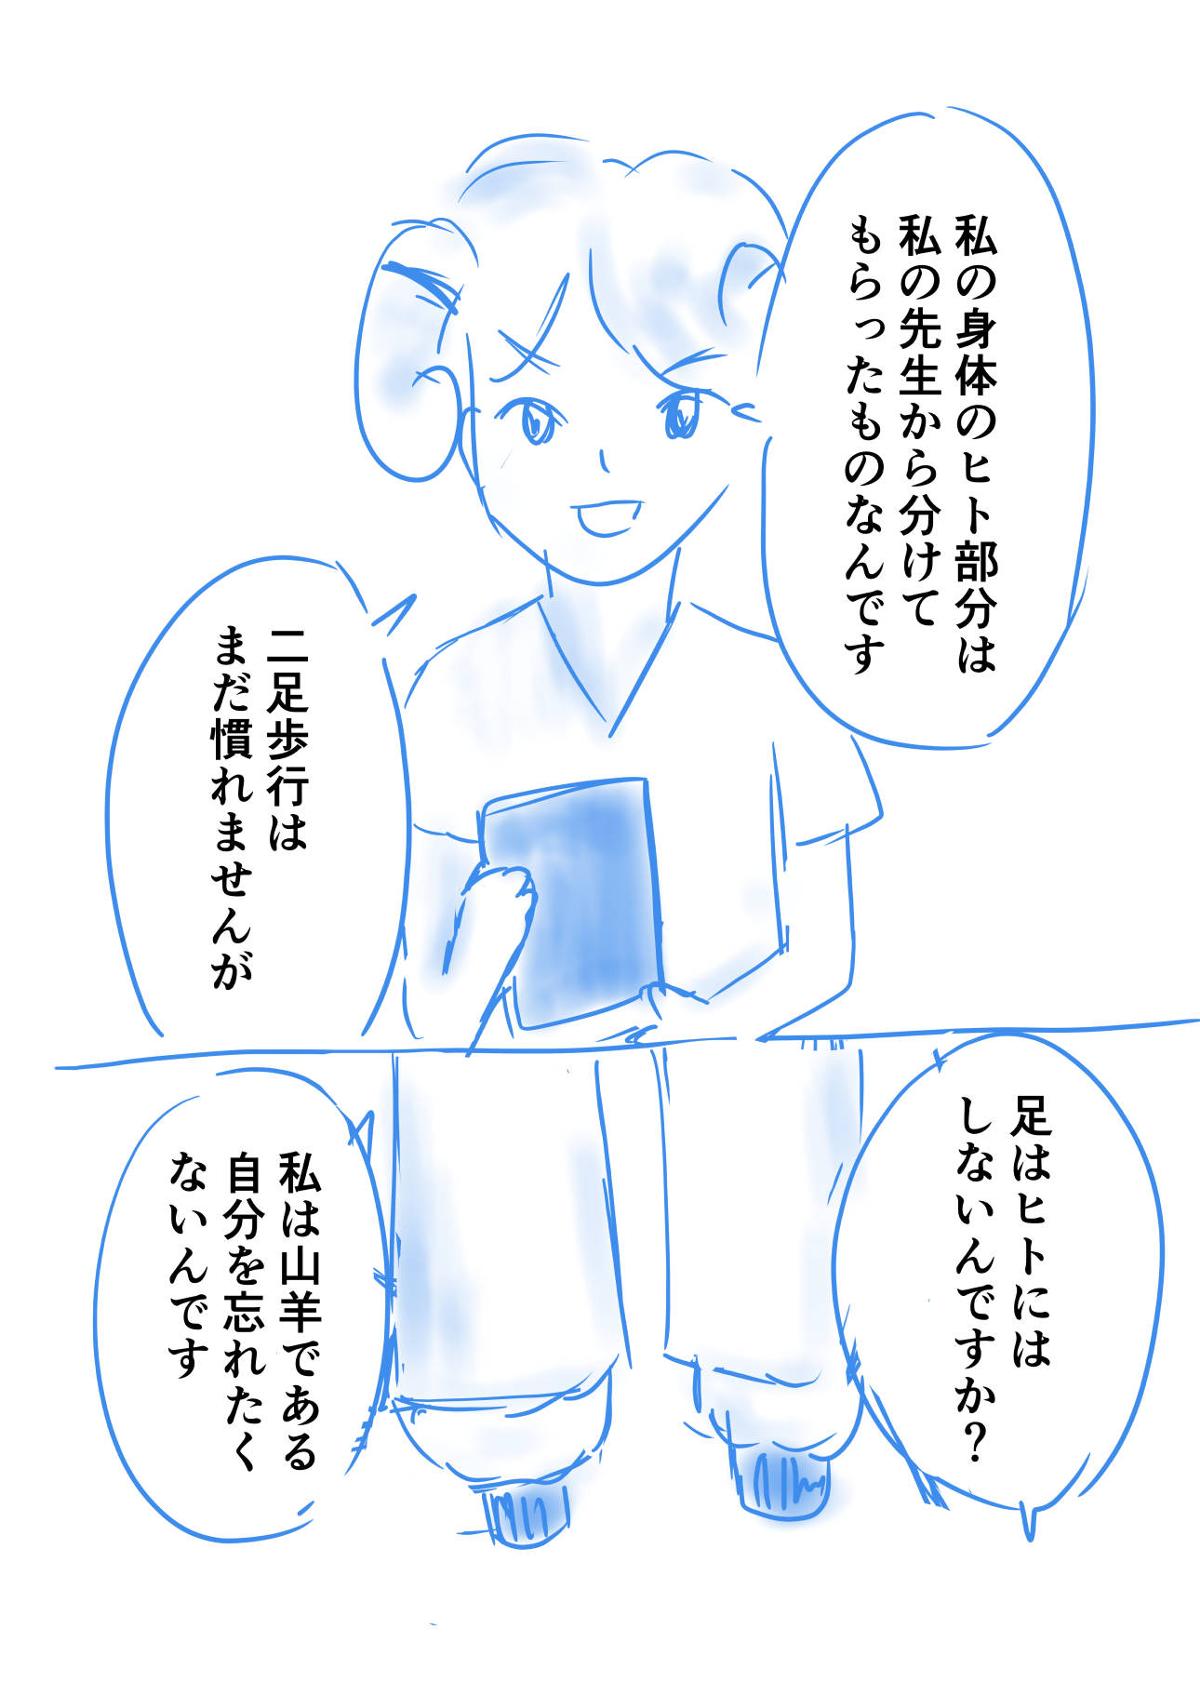 私の身体のヒト部分は
私の先生から分けて
もらったものなんです
二足歩行は
まだ慣れませんが
足はヒトには
しないんですか？
私は山羊である
自分を忘れたく
ないんです